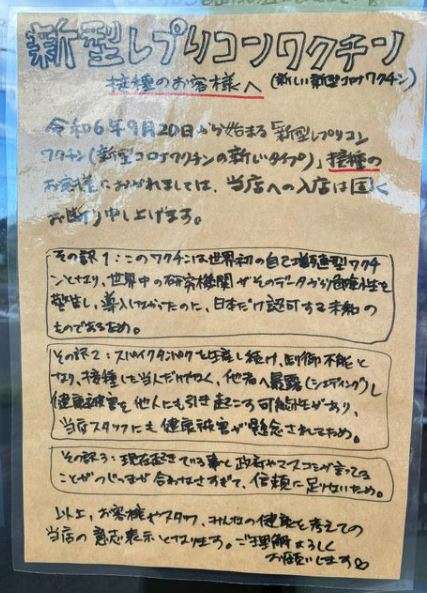 新型レプリコンワクチン
接種のお客様へ (新しい新型コロナワクチン)
令和6年9月20日から始まる「新型レプリコン
ワクチン(新型コロナワクチンの新しいタイプ)」接種の
お客様におかれましては、当店への入店は固く
お断り申し上げます。
その訳1:このワクチンは世界初の自己増殖型ワクチ
ンとなり、世界中の研究機関がそのデータから危険性を
し、導入しなかったのに、日本だけ認可する未知の
ものであるため。
その訳2:スパイクタンパクを生産し続け、制御不能と
なり、接種した当人だけでなく、他者へ暴露(シェディング)し
健康被害を他人にも引き起こす可能性があり、
当店スタッフにも健康被害が懸念されるため。
その訳3:現在起きている事と政府やマスコミが言ってる
ことがつじつまが合わなさすぎて、信頼に足りないため。
以上、お客様やスタッフ、みんなの健康を考えての
当店の意志表示となります。ご理解よろしく
お願いします。